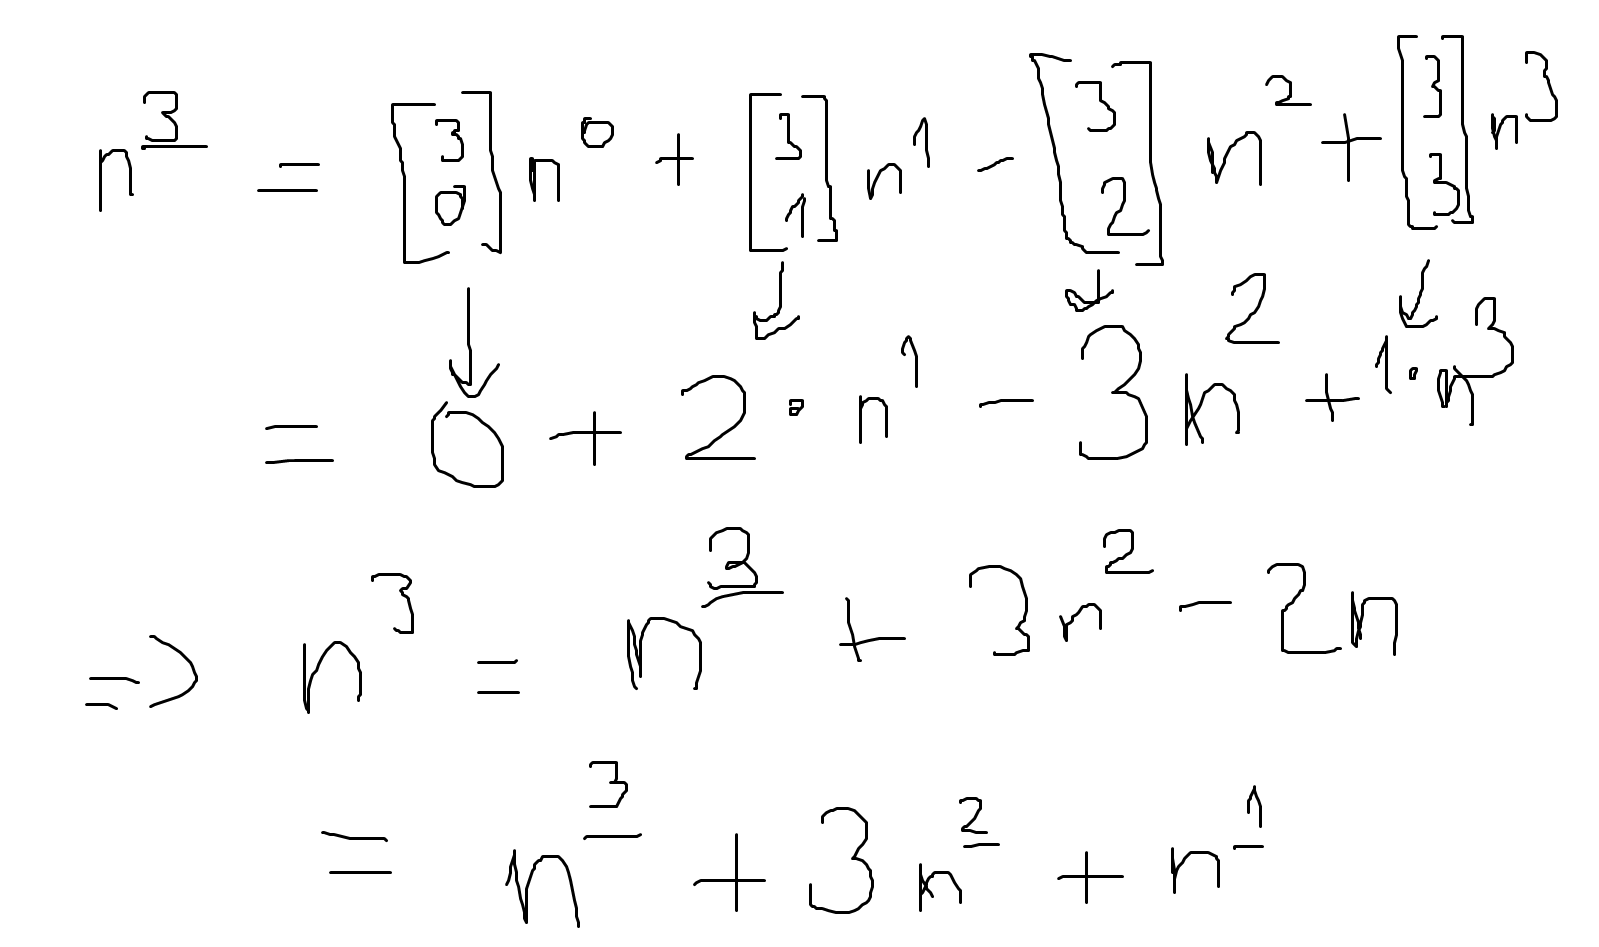 $n^{\underline{3}} = \begin{bmatrix} 3 \\ 0 \end{bmatrix} n^0 + \begin{bmatrix} 3 \\ 1 \end{bmatrix} n^1 - \begin{bmatrix} 3 \\ 2 \end{bmatrix} n^2 + \begin{bmatrix} 3 \\ 3 \end{bmatrix} n^3$
↓ ↓ ↓ ↓
$= 0 + 2 \cdot n^1 - 3n^2 + 1 \cdot n^3$
$\Rightarrow n^3 = n^{\underline{3}} + 3n^2 - 2n$
$= n^{\underline{3}} + 3n^{\underline{2}} + n^{\underline{1}}$